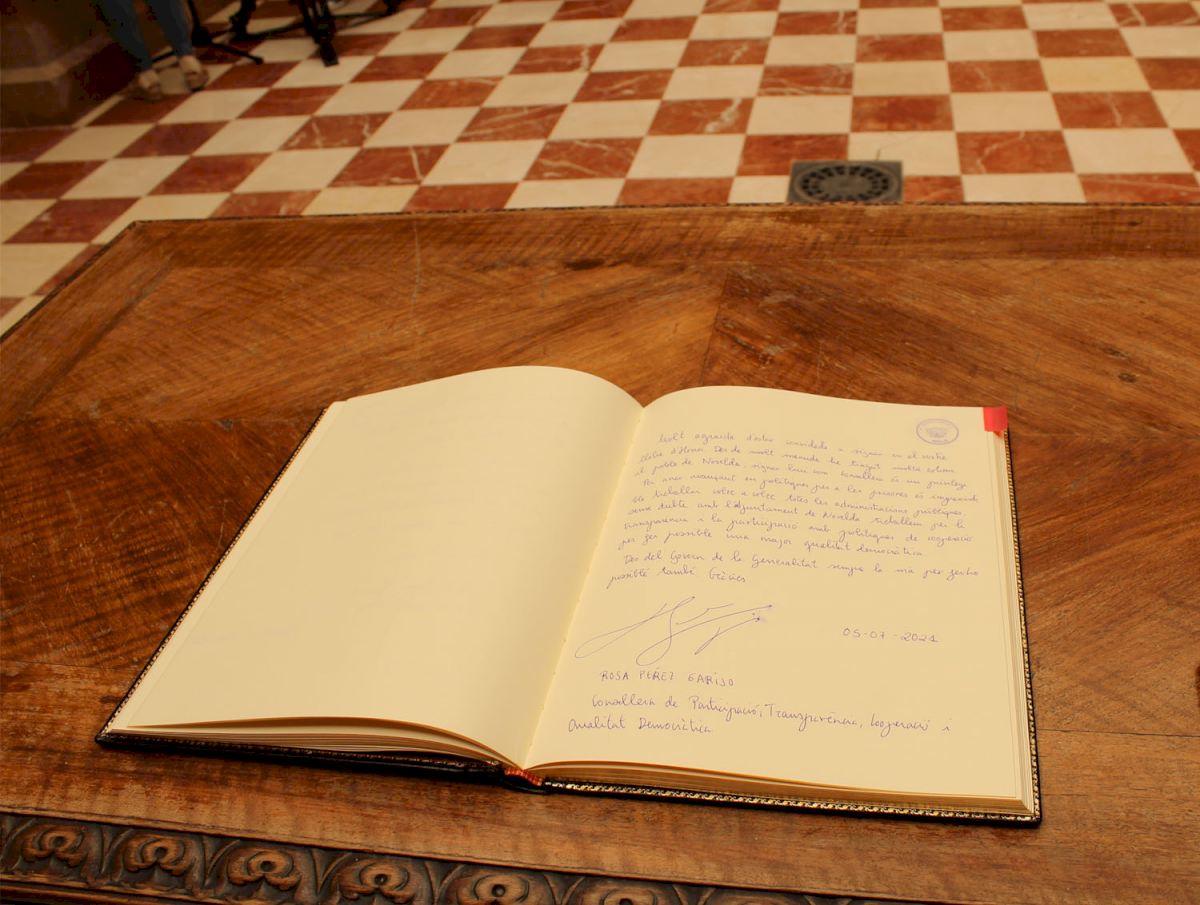 Molt agraida d'estar convidada a signar en el
d'Honor. Des de molt menuda he tingut molta estima
el poble de Novelda, signar hui com consellera és un privilegi
Per anar avançant en polítiques per a les persones és
treballar colze a colze totes les administracions públiques,
sense dubte amb l'Ajuntament de Novelda treballem per la
transparència i la participació amb polítiques de cooperació
per fer possible una major qualitat democràtica.
Des del Govern de la Generalitat sempre la mà per fer-ho
possible també. Gràcies
05-07-2021
ROSA PÉREZ GARIJO
Consellera de Participació, Transparència, Cooperació i
Qualitat Democràtica